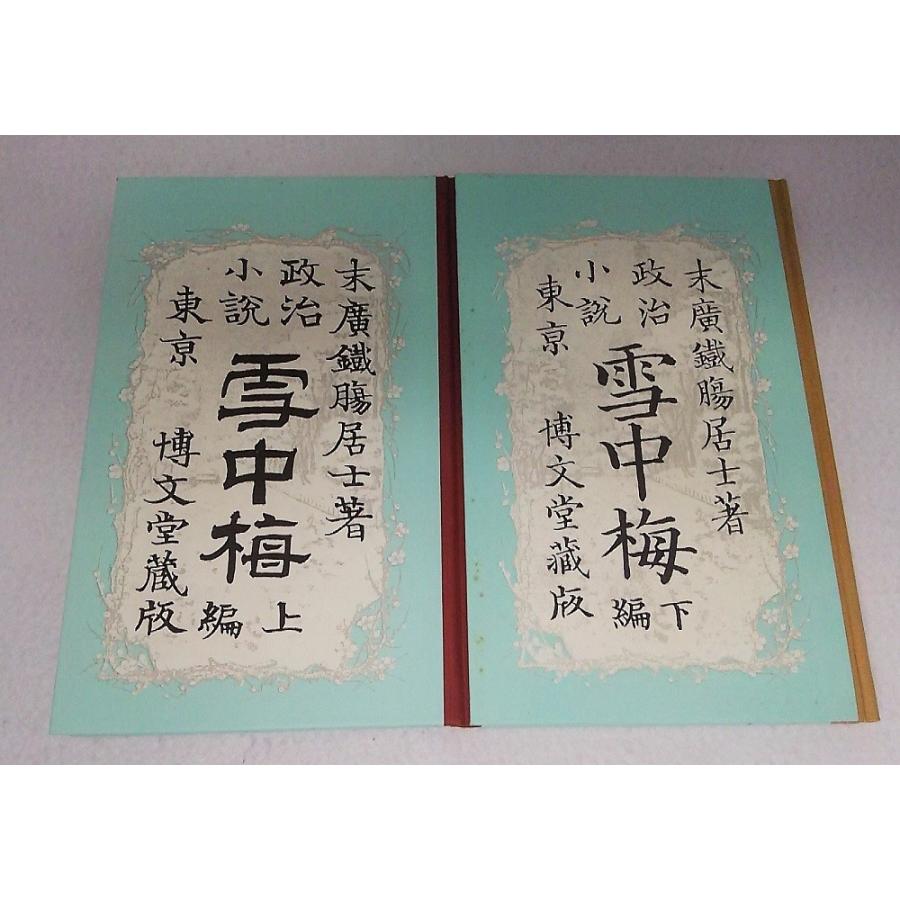 末廣鐵膓居士著
政治
小説
雪中梅
上編
東京
博文堂蔵版
末廣鐵膓居士著
政治
小説
雪中梅
下編
東京
博文堂藏版